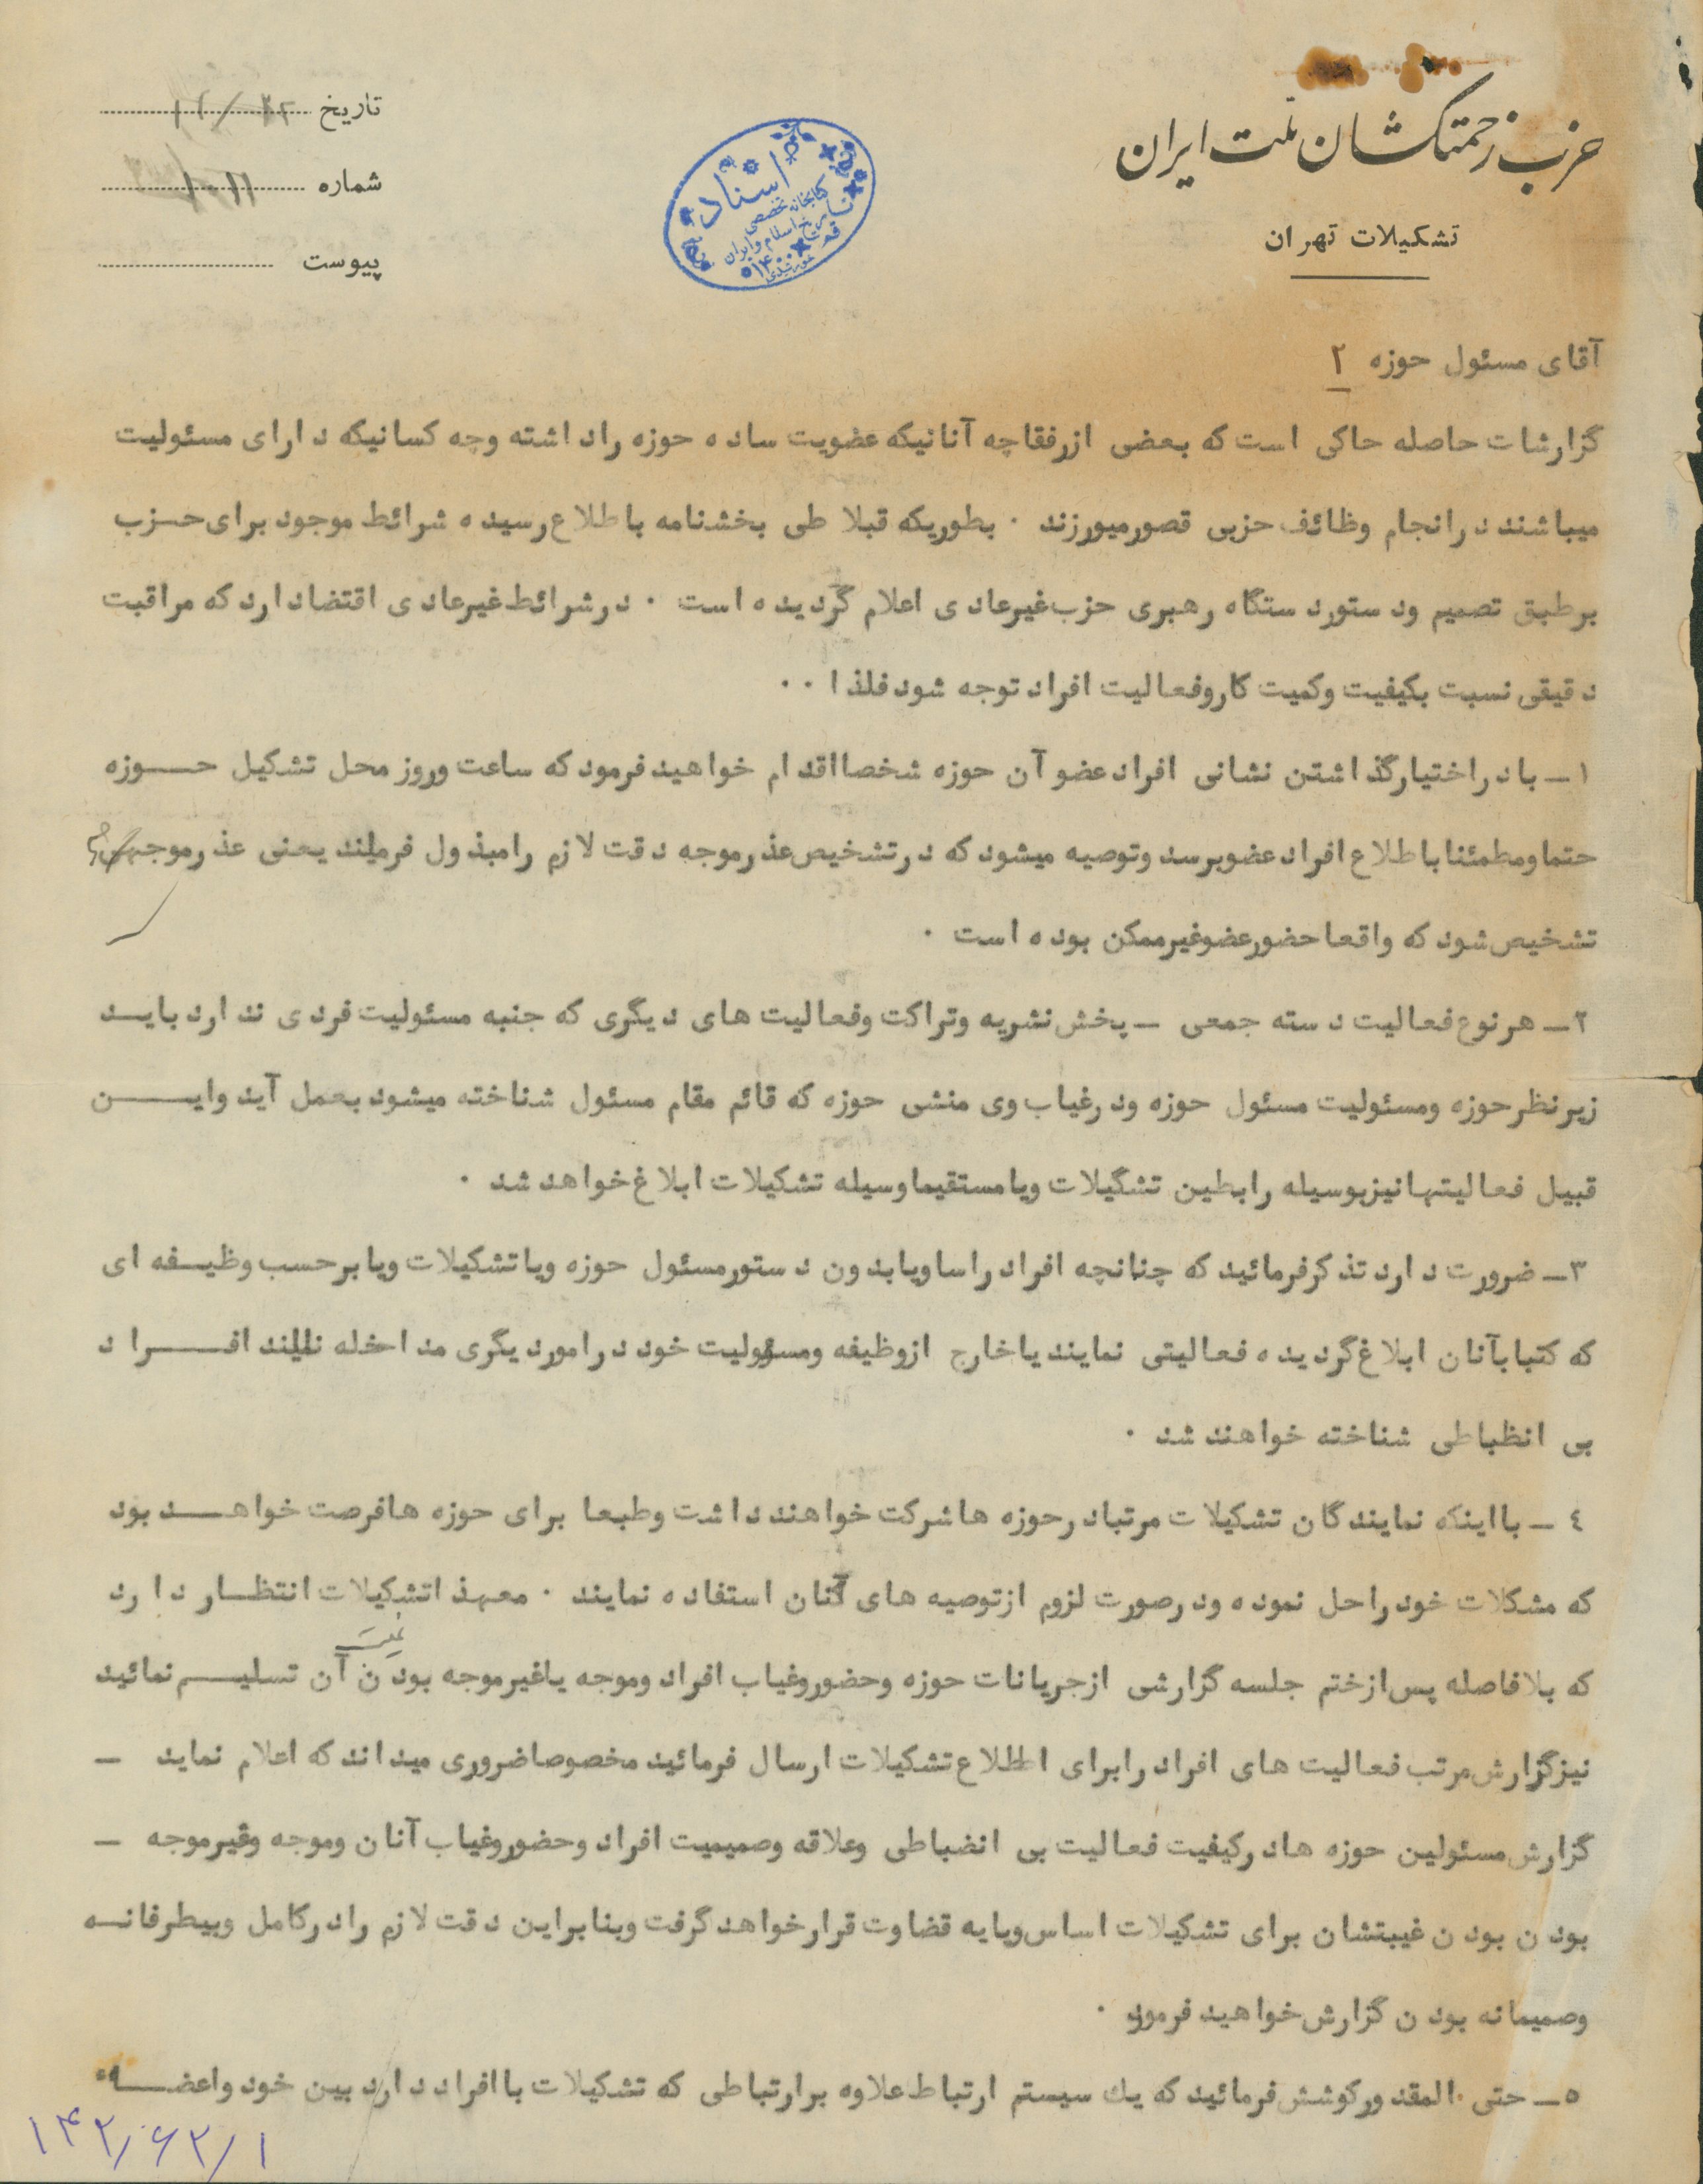 حزب زحمتکشان ملت ایران
تشکیلات تهران
تاریخ
شماره
پیوست
اسناد
کتابخانه تخصصی
تاریخ اسلام و ایران
قم
آقای مسئول حوزه ۲
گزارشات حاصله حاکی است که بعضی ازرفقاچه آنانیکه عضویت ساده حوزه راداشته وچه کسانیکه دارای مسئولیت
میباشند درانجام وظائف حزبی قصورمیورزند ۰ بطوریکه قبلا طی بخشنامه باطلاع رسیده شرائط موجود برای حزب
برطبق تصمیم ودستوردستگاه رهبری حزب غیرعادی اعلام گردیده است ۰ درشرائط غیرعادی اقتضادارد که مراقبت
دقیقی نسبت بکیفیت وکمیت کاروفعالیت افراد توجه شود فلذا ۰۰
۱ـ بادراختیارگذاشتن نشانی افراد عضو آن حوزه شخصااقدام خواهید فرمود که ساعت وروز محل تشکیل حـوزه
حتماومطمئنا باطلاع افراد عضوبرسد وتوصیه میشود که درتشخیص عذرموجه دقت لازم رامبذول فرمایند یعنی عذرموجهی
تشخیص شود که واقعاحضورعضوغیرممکن بوده است ۰
۲ـ هرنوع فعالیت دسته جمعی ـ پخش نشریه وتراکت وفعالیت های دیگری که جنبه مسئولیت فردی ندارد بایـد
زیرنظرحوزه ومسئولیت مسئول حوزه ودرغیاب وی منشی حوزه که قائم مقام مسئول شناخته میشود بعمل آید وایـن
قبیل فعالیتهانیزبوسیله رابطین تشگیلات ویامستقیماوسیله تشکیلات ابلاغ خواهد شد ۰
۳ـ ضرورت دارد تذکرفرمائید که چنانچه افراد راساویابدون دستورمسئول حوزه ویاتشکیلات ویابرحسب وظیـفه ای
که کتبابآنان ابلاغ گردیده فعالیتی نمایند یاخارج ازوظیفه ومسئولیت خود درامور دیگری مداخله نمایند افـراد
بی انظباطی شناخته خواهند شد ۰
٤ ـ بااینکه نمایندگان تشکیلات مرتبادرحوزه هاشرکت خواهند داشت وطبعا برای حوزه هافرصت خواهـد بود
که مشکلات خود راحل نموده ودرصورت لزوم ازتوصیه های آنان استفاده نمایند ۰ معهذاتشکیلات انتظـار دارد
که بلافاصله پس ازختم جلسه گزارشی ازجریانات حوزه وحضوروغیاب افراد وموجه یاغیرموجه بودن غیبت آن تسلیـم نمائید
نیزگزارش مرتب فعالیت های افراد رابرای اطلاع تشکیلات ارسال فرمائید مخصوصاضروری میداند که اعلام نماید ـ
گزارش مسئولین حوزه هادرکیفیت فعالیت بی انضباطی وعلاقه وصمیمیت افراد وحضوروغیاب آنان وموجه وغیرموجه ـ
بودن بودن غیبتشان برای تشکیلات اساس وپایه قضاوت قرارخواهد گرفت وبنابراین دقت لازم رادرکامل وبیطرفانـه
وصمیمانه بودن گزارش خواهید فرمود ۰
۵ـ حتی المقدورکوشش فرمائید که یك سیستم ارتباط علاوه برارتباطی که تشکیلات باافراد دارد بین خود واعضـاء
۱۴۲/۶۲/۱